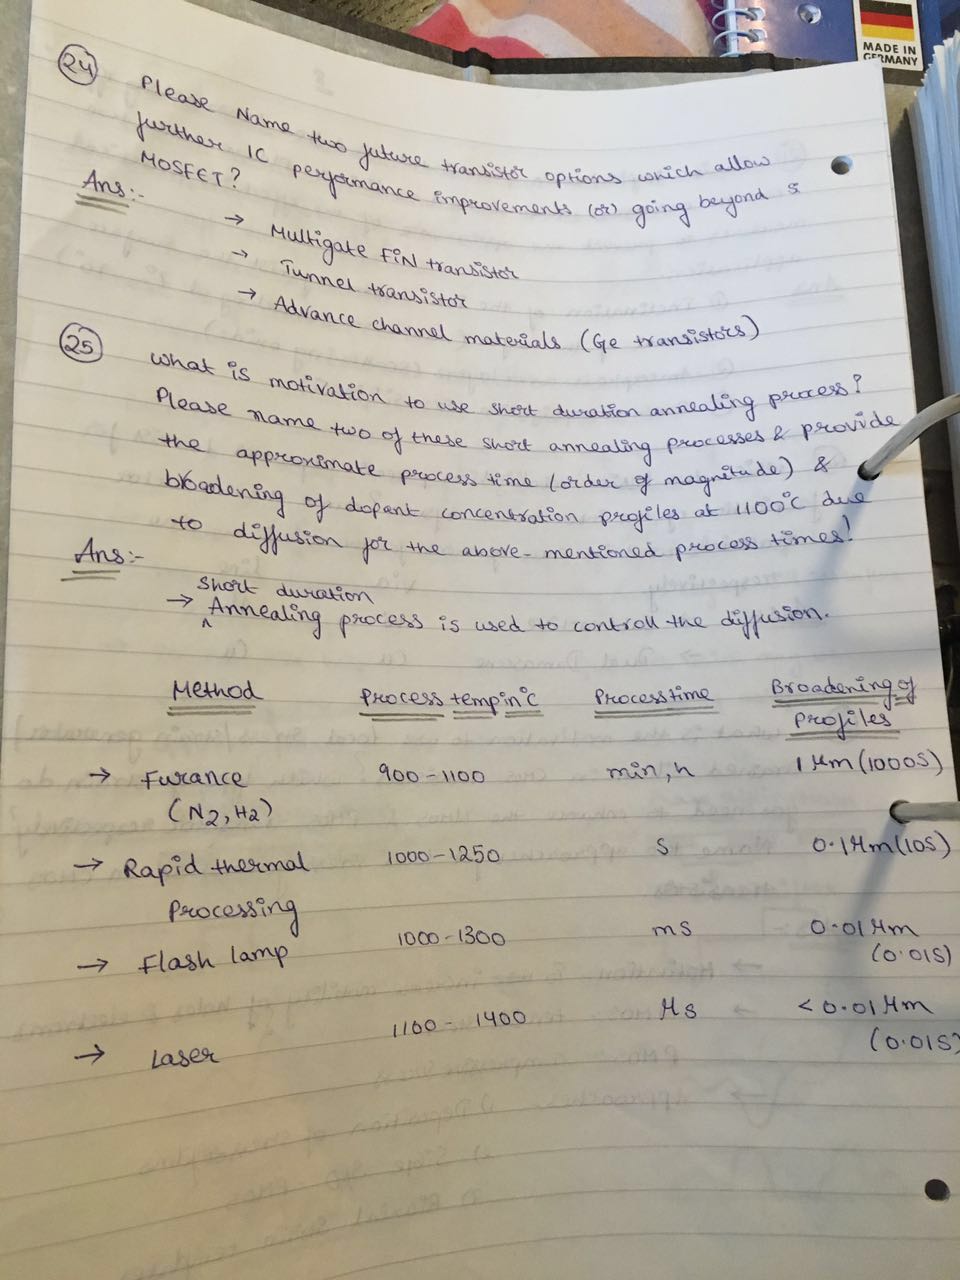 MADE IN
GERMANY
24 Please Name two future transistor options which allow
further IC performance improvements (or) going beyond
MOSFET?
Ans:-
→ Multigate FiN transistor
→ Tunnel transistor
→ Advance channel materials (Ge transistors)
25 what is motivation to use short duration annealing process?
Please name two of these short annealing processes & provide
the approximate process time (order of magnitude) &
broadening of dopant concentration profiles at 1100°C due
to diffusion for the above-mentioned process times!
Ans:-
short duration
→ ^ Annealing process is used to controll the diffusion.
Method Process temp in°c Process time Broadening of
Profiles
→ Furance 900-1100 min, h 1 μm (1000s)
(N2, H2)
→ Rapid thermal 1000-1250 s 0.1μm (10s)
Processing
→ Flash lamp 1000-1300 ms 0.01 μm
(0.01s)
→ Laser 1100-1400 μs <0.01 μm
(0.01s)